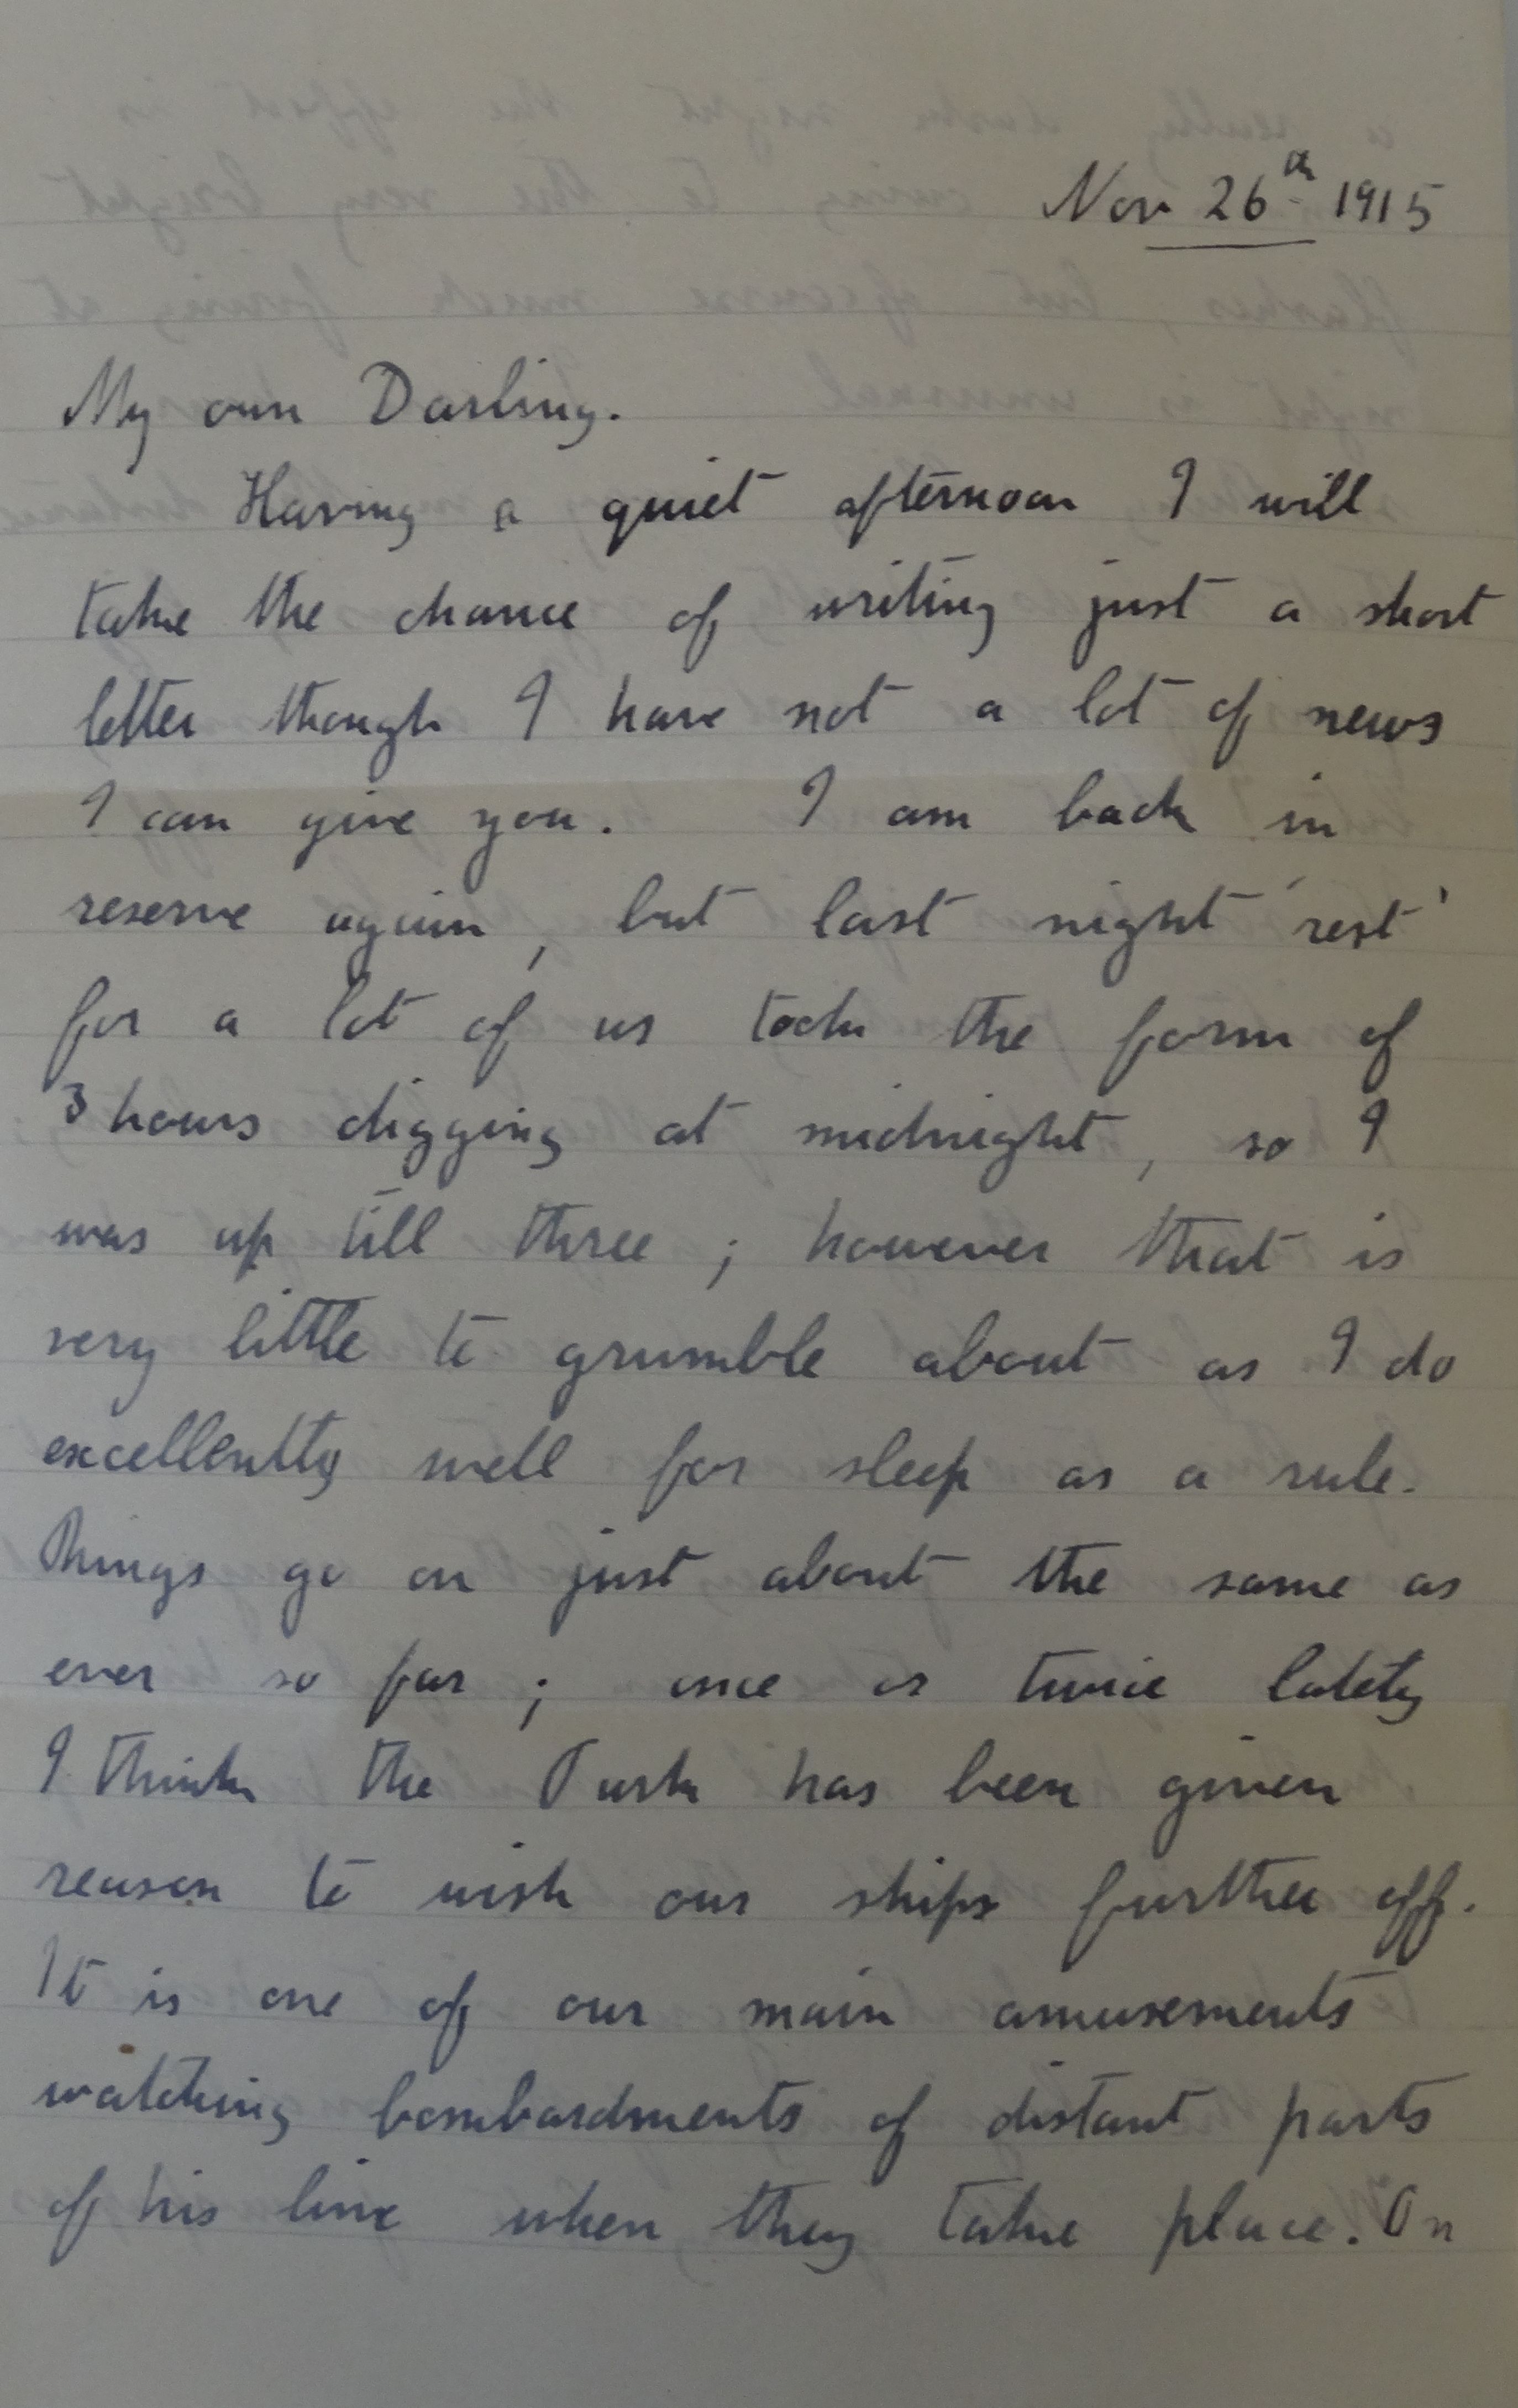 Nov 26th 1915
My own Darling.
Having a quiet afternoon I will
take the chance of writing just a short
letter though I have not a lot of news
I can give you. I am back in
reserve again, but last night 'rest'
for a lot of us took the form of
3 hours digging at midnight, so I
was up till three; however that is
very little to grumble about as I do
excellently well for sleep as a rule.
Things go on just about the same as
ever so far; once or twice lately
I think the Turk has been given
reason to wish our ships further off.
It is one of our main amusements
watching bombardments of distant parts
of his line when they take place. On